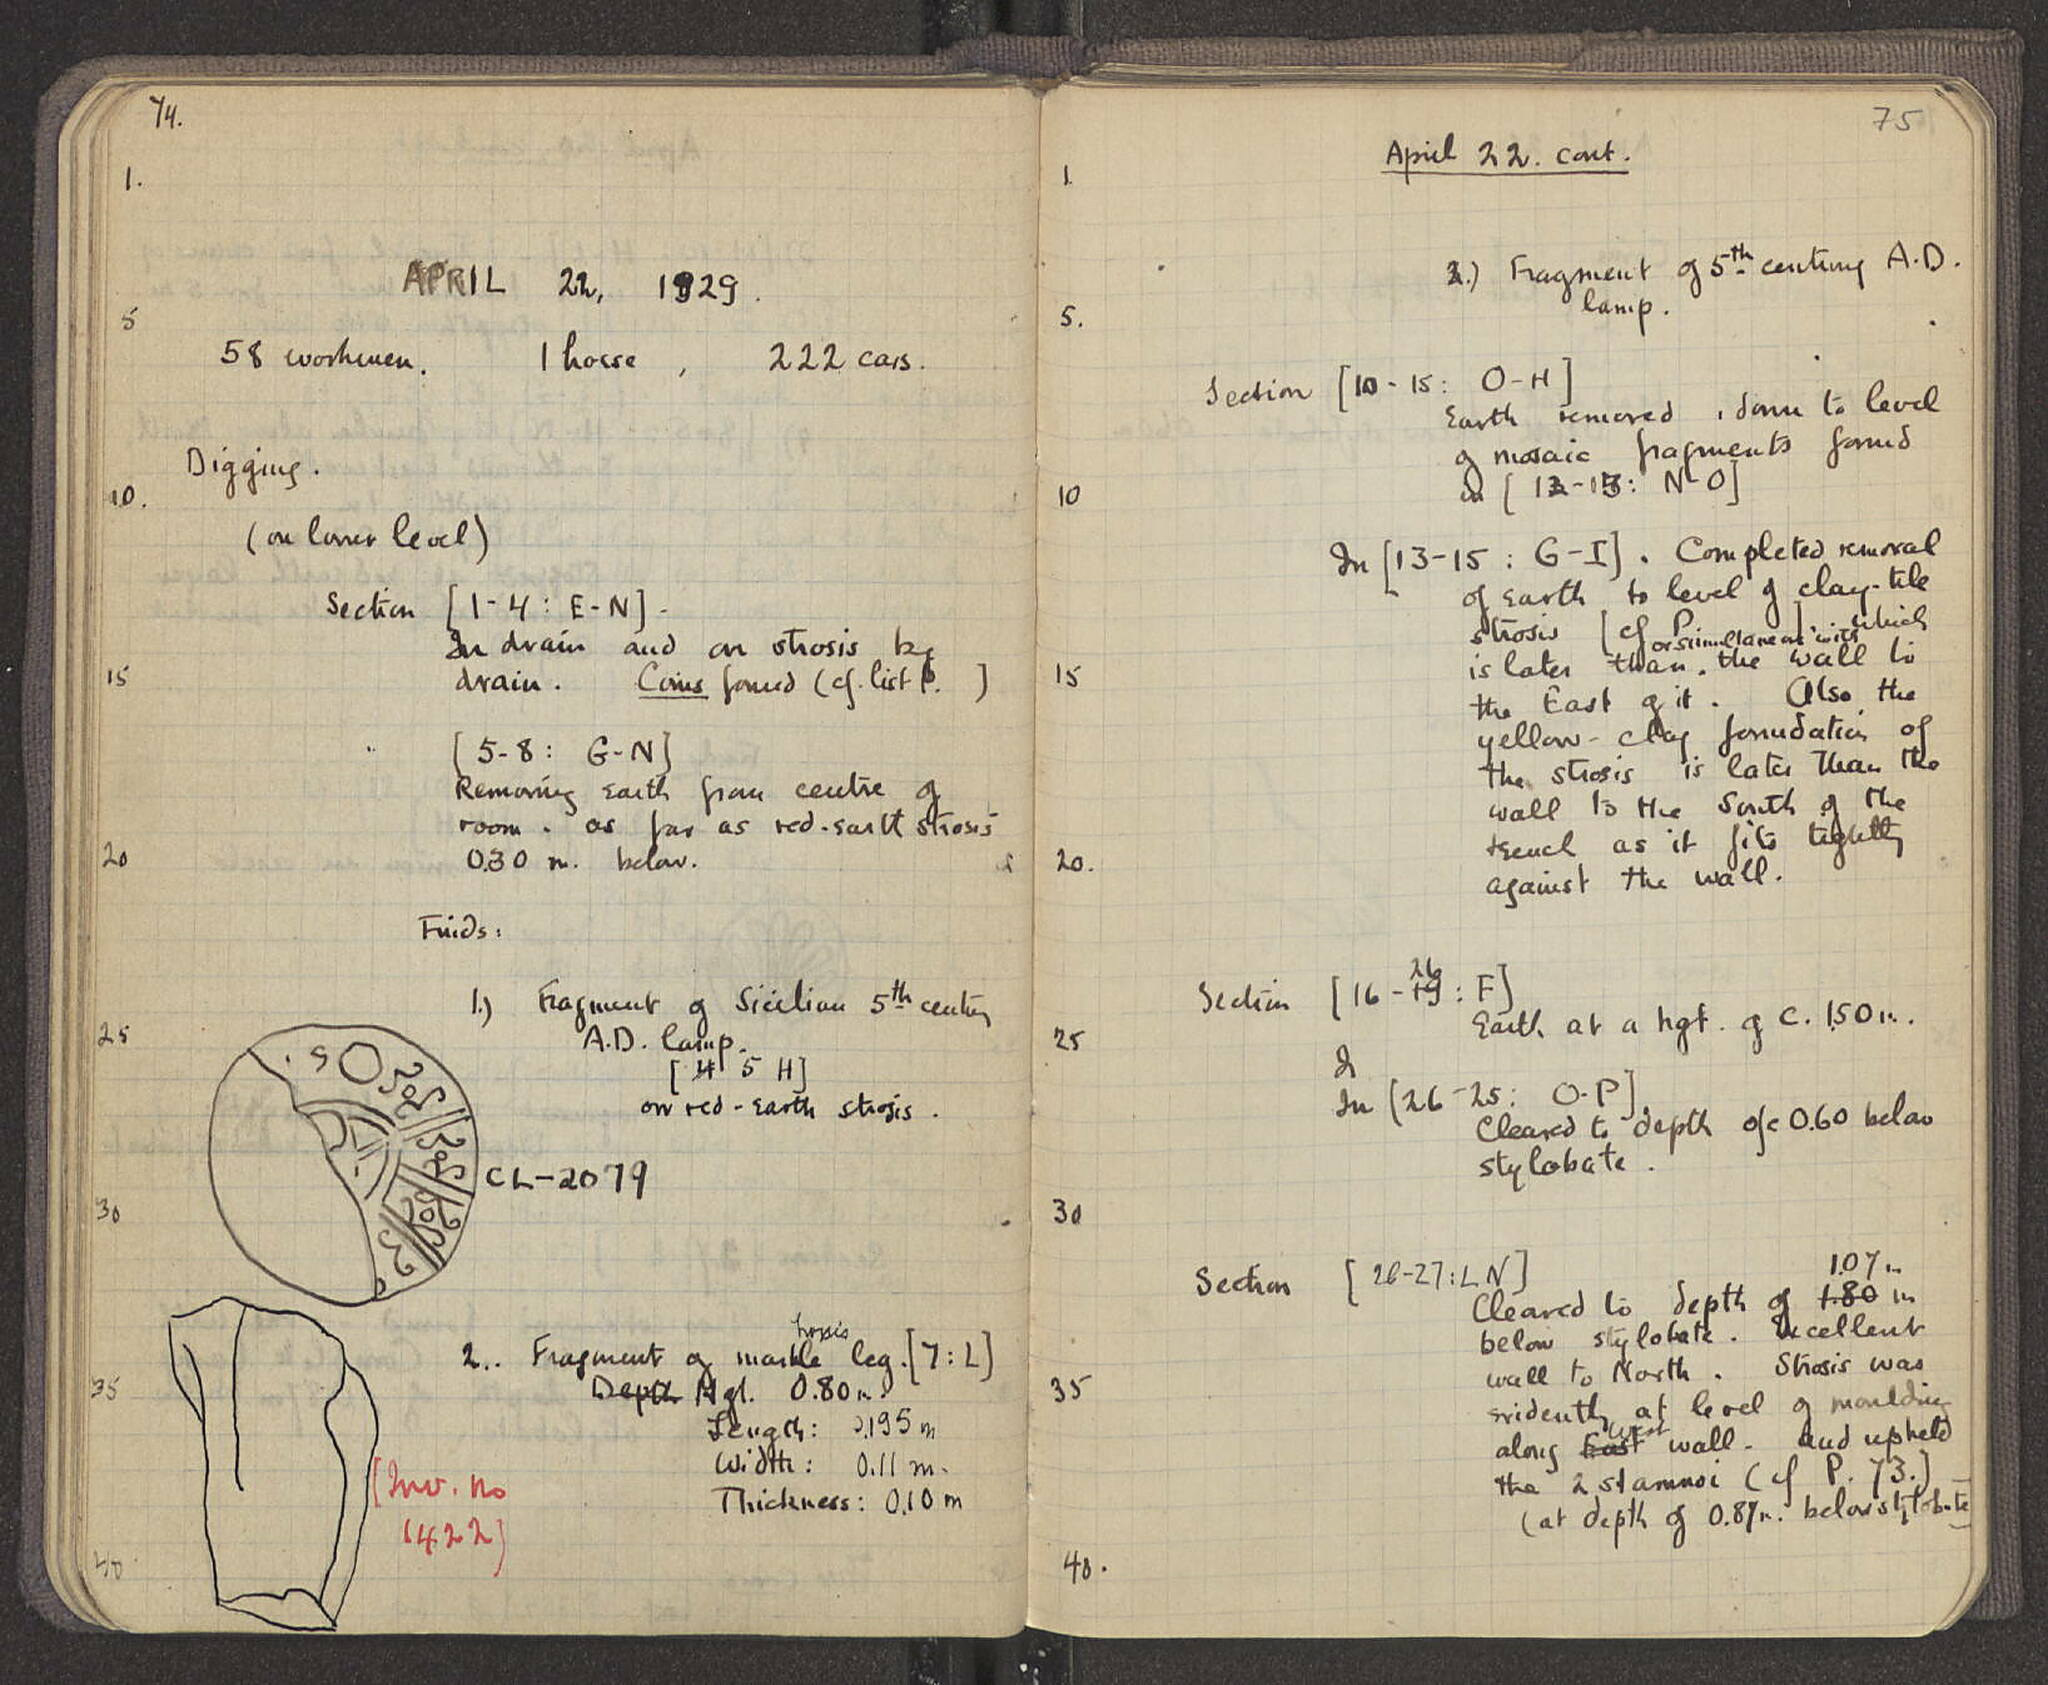 74.
1.
APRIL 22, 1929.
5
58 workmen. 1 horse, 222 cars.
Digging.
10.
(on lower level)
Section [1-4: E-N] -
In drain and on strosis by
15
drain. Coins found (cf. list p. )
" [5-8: G-N]
Removing earth from centre of
room. as far as red-earth strosis
20
0.30 m. below.
Finds:
1.) Fragment of Sicilian 5th century
25
A.D. lamp.
[4 5 H]
on red-earth strosis.
CL-2079
30
2.. Fragment of marble leg. [7:L]
35
Depth Hgt. 0.80 m.
Length: 0.195 m
Width: 0.11 m.
Thickness: 0.10 m
[Inv. no
1422]
40
75
April 22. cont.
1
2.) Fragment of 5th century A.D.
5.
lamp.
Section [10-15: O-H]
Earth removed, down to level
of mosaic fragments found
10
in [12-13: N-O]
In [13-15: G-I]. Completed removal
of earth to level of clay-tile
strosis [cf P. ]. which
or simultaneous with
15
is later than. the wall to
the East of it. Also the
yellow-clay foundation of
the strosis is later than the
wall to the South of the
20.
trench as it fits tightly
against the wall.
26
Section [16-19: F]
25
Earth at a hgt. of c. 1.50 m.
In [26-25: O-P]
Cleared to depth of c 0.60 below
stylobate.
30
Section [26-27: L N]
1.07 m
Cleared to depth of 1.80 m
below stylobate. Excellent
wall to North. Strosis was
35
evidently at level of moulding
West
along East wall. and upheld
the 2 stamnoi (cf P. 73.)
(at depth of 0.87 m. below stylobate
40.